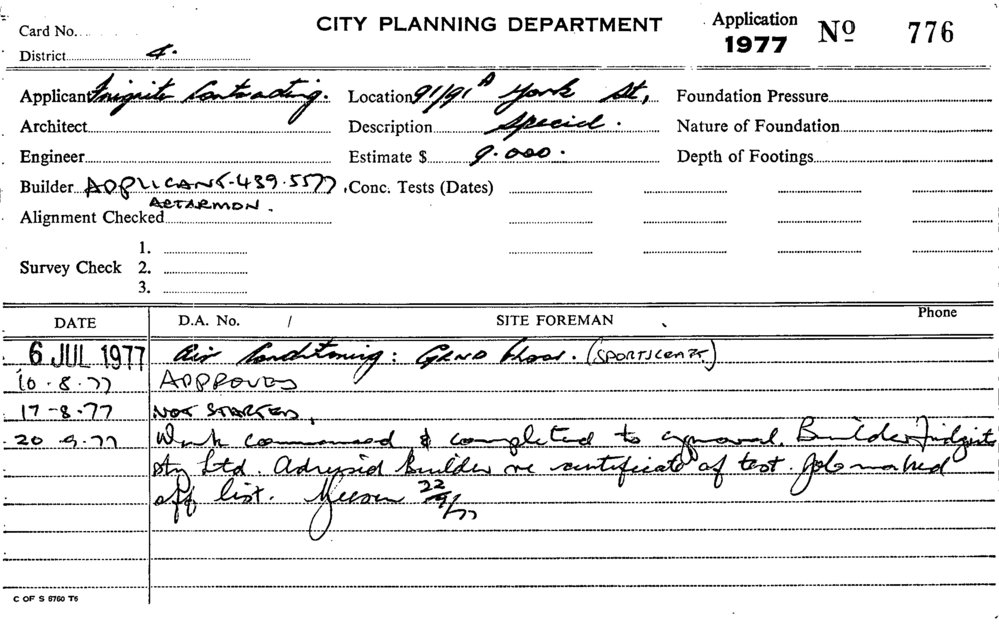 Card No.
CITY PLANNING DEPARTMENT
Application
1977
No 776
District 4.
Applicant Frigrite Contracting.
Location 91/91A York St,
Foundation Pressure
Architect
Description Special.
Nature of Foundation
Engineer
Estimate $ 9.000.
Depth of Footings
Builder APPLICANT. 439.5577
ARTARMON.
Conc. Tests (Dates)
Alignment Checked
Survey Check
1.
2.
3.
DATE
D.A. No. /
SITE FOREMAN
Phone
6 JUL 1977 Air Conditioning: GRND Floor. (SPORTSCRAFT)
10.8.77 APPROVED
17-8.77 NOT STARTED.
20 9.77 Work commenced & completed to approval. Builder
Pty Ltd. Advised builder re certificate of test. Job marked
off list. 22/9/77
C OF S 8760 T6